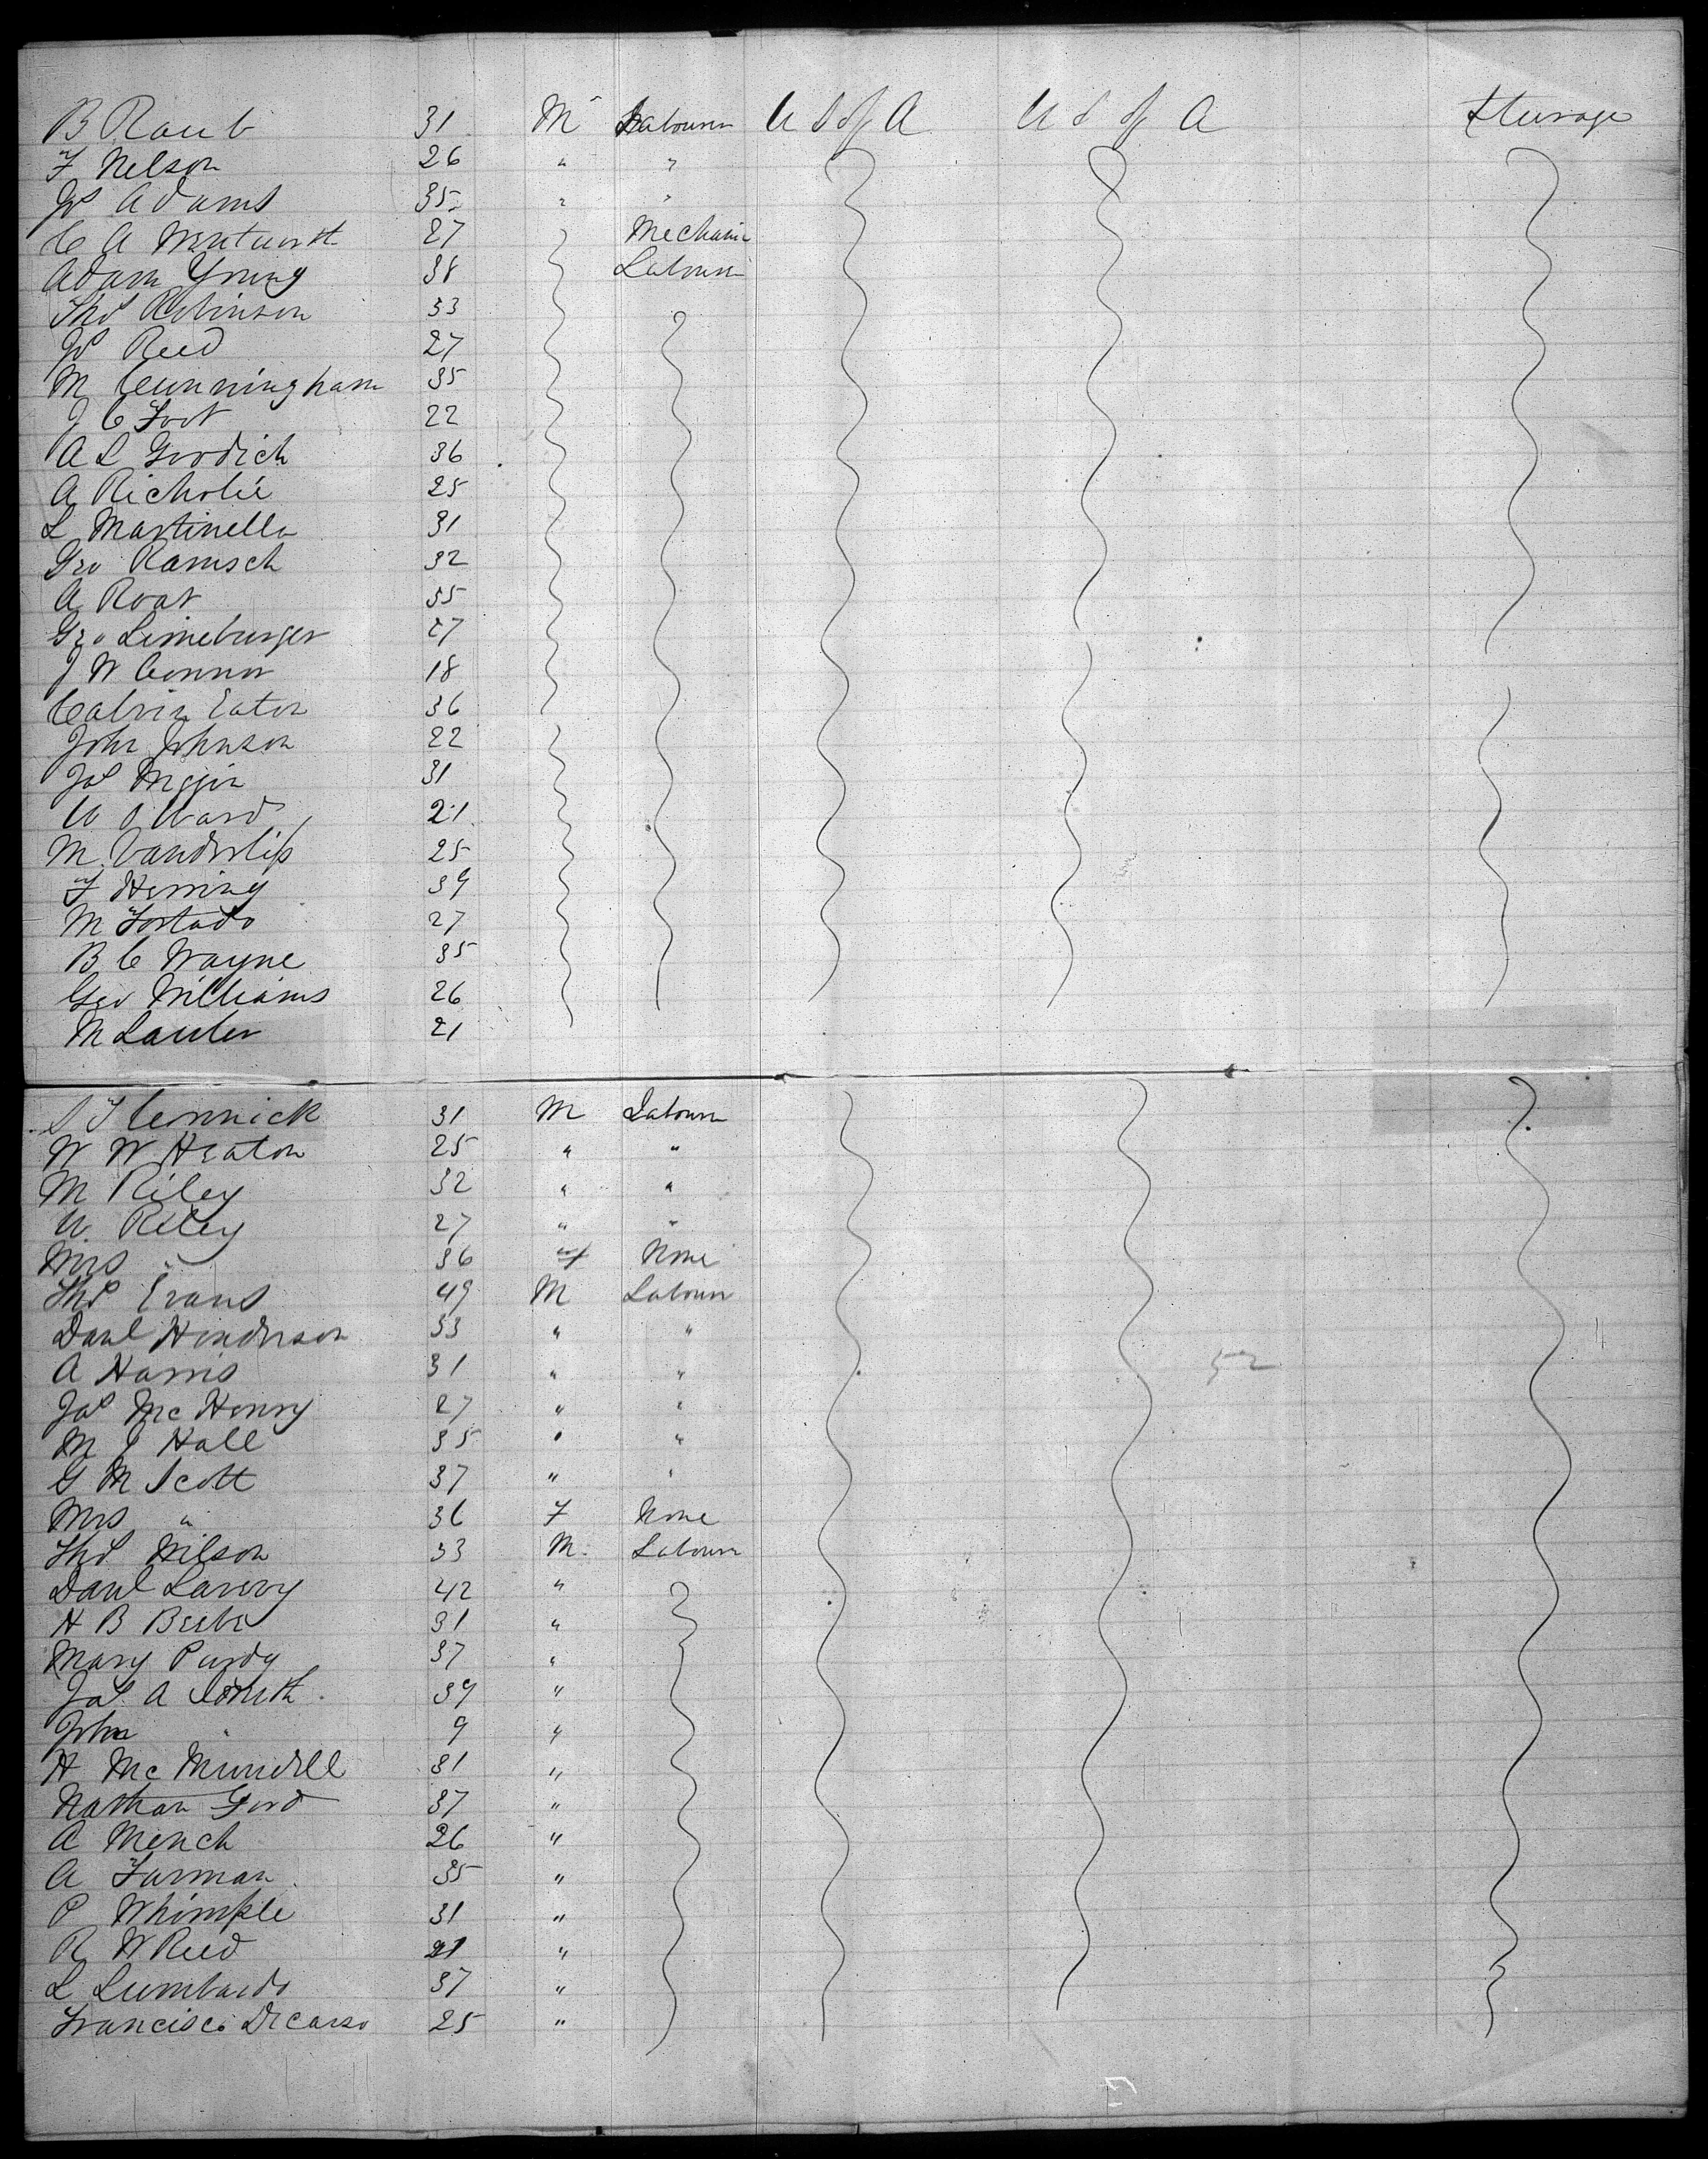 B Raub 31 M Labourer U S of A U S of A Steerage
F Nelson 26 " "
Js Adams 35 " "
C A Wentworth 27 Mechanic
Adam Young 38 Labourer
Thos Robinson 33
Js Reed 27
M Cunningham 35
J C Foot 22
A L Goodich 36
A Richolie 25
L Martinella 31
Geo Ramsch 32
A Roat 35
Geo Limeburger 27
J W Connor 18
Calvin Eaton 36
John Johnson 22
Jas 31
W S Ward 21
M Vanderlip 25
F Herring 39
M Fortado 27
B C Wayne 35
Geo Williams 26
M Lauler 21
S T Cennick 31 M Labourer
W W Heaton 25 " "
M Riley 32 " "
W. Riley 27 " "
Mrs " 36 f None
Thos Evans 49 M Labourer
Danl Henderson 33 " "
A Harris 31 " "
Jas McHenry 27 " "
M J Hall 35 " "
G M Scott 37 " "
Mrs " 36 F None
Thos Wilson 33 M Labourer
Danl Lavery 42 "
H B Beebe 31 "
Mary Purdy 37 "
Jas A Smith 39 "
John " 9 "
H McMundell 31 "
Nathan Ford 37 "
A Mench 26 "
A Furman 35 "
P Whimple 31 "
R W Reed 21 "
L Lumbardo 37 "
Francisco Decarso 25 "
52